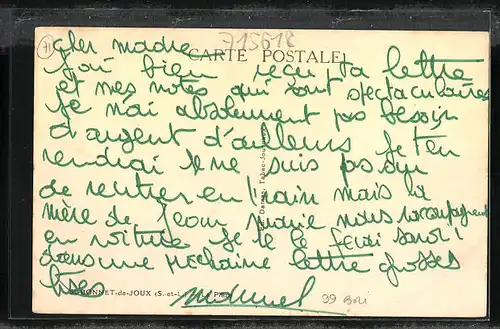 71
715618
CARTE POSTALE
cher madre
j'ai bien reçu ta lettre
et mes notes qui sont spectaculaires
je n'ai absolument pas besoin
d'argent d'ailleurs je t'en
rendrai je ne suis pas
de rentrer en train mais la
mère de Jean Marie nous raccompagnera
en voiture je te le ferai savoir
dans une prochaine lettre grosses
bises
BONNET-de-JOUX (S.-et-L.
39 Bori